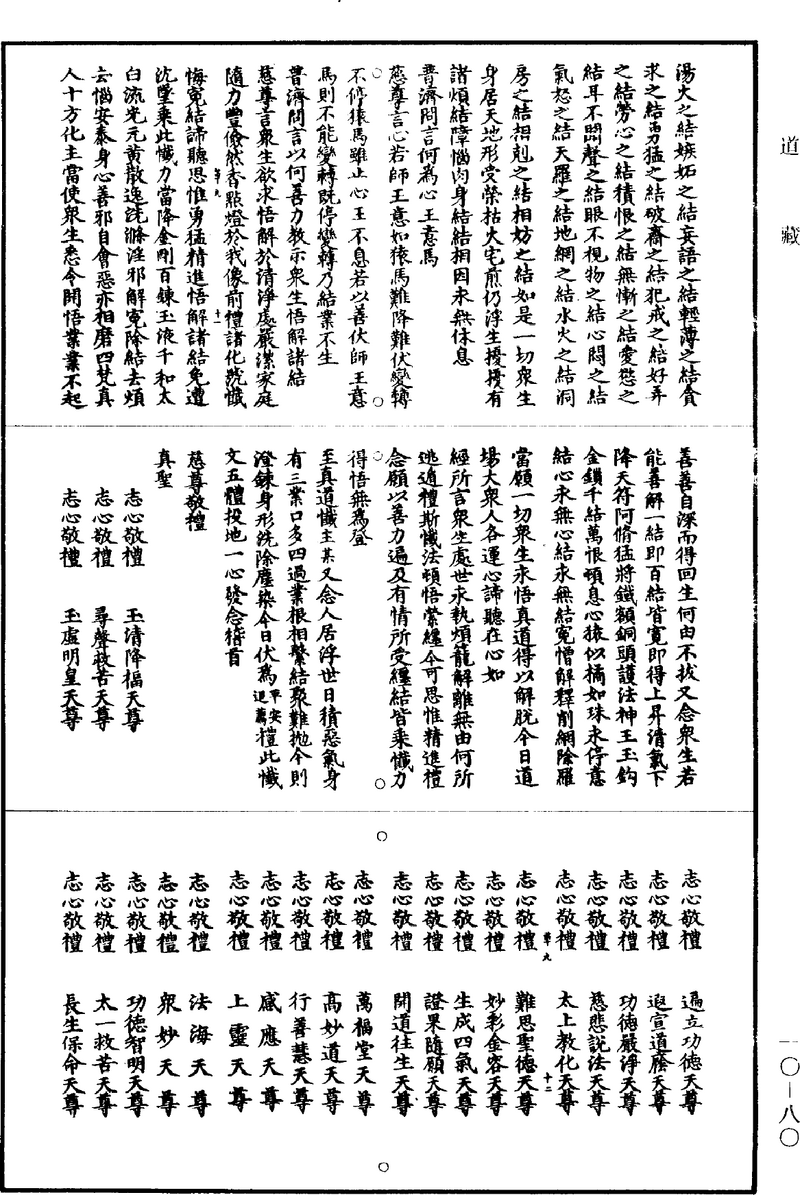 道藏
湯火之結嫉妬之結妄語之結輕薄之結貪
求之結勇猛之結破齋之結犯戒之結好弄
之結勞心之結積恨之結無慚之結愛慾之
結耳不聞聲之結眼不視物之結心悶之結
氣怒之結天羅之結地網之結水火之結洞
房之結相剋之結相妨之結如是一切衆生
身居天地形受榮枯火宅煎仍浮生擾擾有
諸煩結障惱肉身結結相因永無休息
普濟問言何爲心王意馬
慈尊言心若師王意如猿馬難降難伏變轉
不停猿馬雖止心王不息若以善伏師王意
馬則不能變轉既停變轉乃結業不生
普濟問言以何善力教示衆生悟解諸結
慈尊言衆生欲求悟解於清淨處嚴潔家庭
隨力豐儉然香點燈於我像前禮諸化號懺
悔冤結諦聽思惟勇猛精進悟解諸結免遭
沈墜乘此懺力當降金剛百鍊玉液千和太
白流光元黃散逸洗滌淫邪解冤除結去煩
去惱安泰身心善邪自會惡亦相磨四梵真
人十方化主當使衆生悉令開悟業業不起
善善自深而得回生何由不拔又念衆生若
能善解一結即百結皆寬即得上昇清氣下
降天符阿脩猛將鐵額銅頭護法神王玉鈎
金鎖千結萬恨頓息心猿似橘如珠永停意
結心永無心結永無結冤憎解釋削網除羅
當願一切衆生永悟真道得以解脫今日道
場大衆人各運心諦聽在心如
經所言衆生處世求執煩籠解離無由何所
逃遁禮斯懺法頓悟縈纏今可思惟精進禮
念願以善力遍及有情所受纏結皆乘懺力
得悟無爲登
至真道懺主某又念人居浮世日積惡氣身
有三業口多四過業根相繫結聚難拋今則
澄鍊身形洗除塵染今日伏爲平安追薦禮此懺
文五體投地一心發念稽首
慈尊敬禮
真聖
志心敬禮 玉清降福天尊
志心敬禮 尋聲救苦天尊
志心敬禮 玉虛明皇天尊
志心敬禮 遍立功德天尊
志心敬禮 遐宣道廕天尊
志心敬禮 功德嚴淨天尊
志心敬禮 慈悲說法天尊
志心敬禮 太上教化天尊
志心敬禮 難思聖德天尊
志心敬禮 妙彩金容天尊
志心敬禮 生成四氣天尊
志心敬禮 證果隨願天尊
志心敬禮 開道往生天尊
志心敬禮 萬福堂天尊
志心敬禮 高妙道天尊
志心敬禮 行善慧天尊
志心敬禮 感應天尊
志心敬禮 上靈天尊
志心敬禮 法海天尊
志心敬禮 衆妙天尊
志心敬禮 功德智明天尊
志心敬禮 太一救苦天尊
志心敬禮 長生保命天尊
一〇—八〇